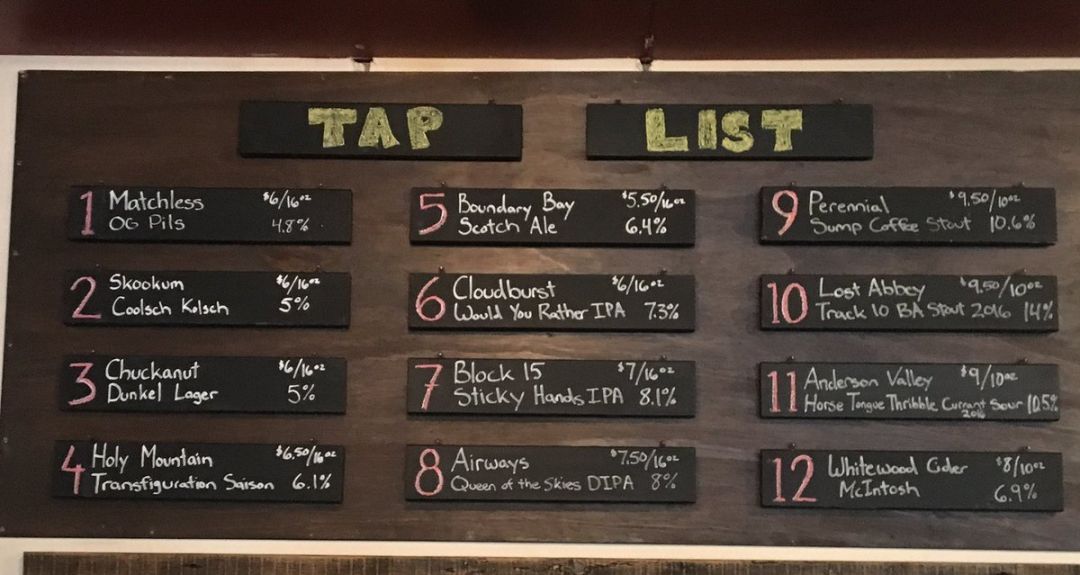 TAP LIST
1 Matchless $6/16oz
OG Pils 4.8%
2 Skookum $6/16oz
Coolsch Kolsch 5%
3 Chuckanut $6/16oz
Dunkel Lager 5%
4 Holy Mountain $6.50/16oz
Transfiguration Saison 6.1%
5 Boundary Bay $5.50/16oz
Scotch Ale 6.4%
6 Cloudburst $6/16oz
Would You Rather IPA 7.3%
7 Block 15 $7/16oz
Sticky Hands IPA 8.1%
8 Airways $7.50/16oz
Queen of the Skies DIPA 8%
9 Perennial $9.50/10oz
Sump Coffee Stout 10.6%
10 Lost Abbey $9.50/10oz
Track 10 BA Stout 2016 14%
11 Anderson Valley $9/10oz
Horse Tongue Thribble Currant Sour 10.5%
2016
12 Whitewood Cider $8/10oz
McIntosh 6.9%